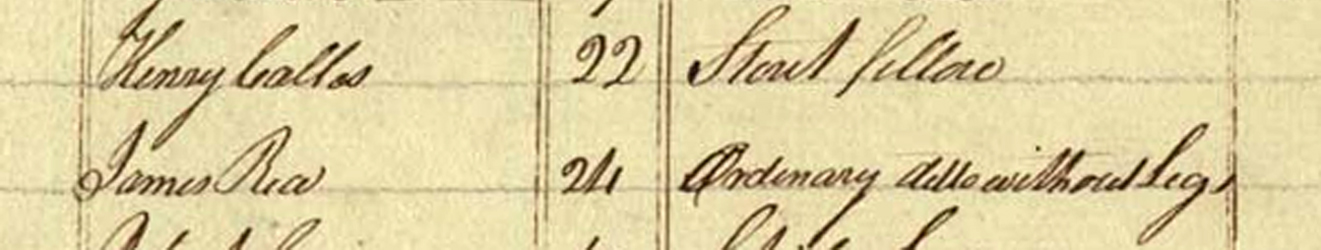 Henry Calls 22 Stout fellow
James Rea 24 Ordinary ditto without Legs